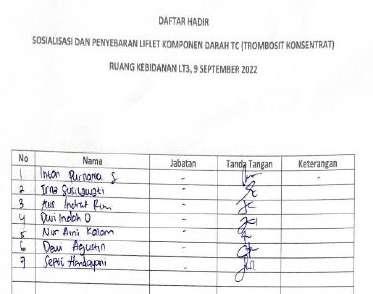 DAFTAR HADIR
SOSIALISASI DAN PENYEBARAN LIFLET KOMPONEN DARAH TC (TROMBOSIT KONSENTRAT)
RUANG KEBIDANAN LT3, 9 SEPTEMBER 2022
No Nama Jabatan Tanda Tangan Keterangan
1 Intan Purnama S - -
2 Irna Susilawati -
3 Indah -
4 Dwi Indah D -
5 Nur Aini Kalam -
6 Dewi Agustin -
7 Septi Handayani -